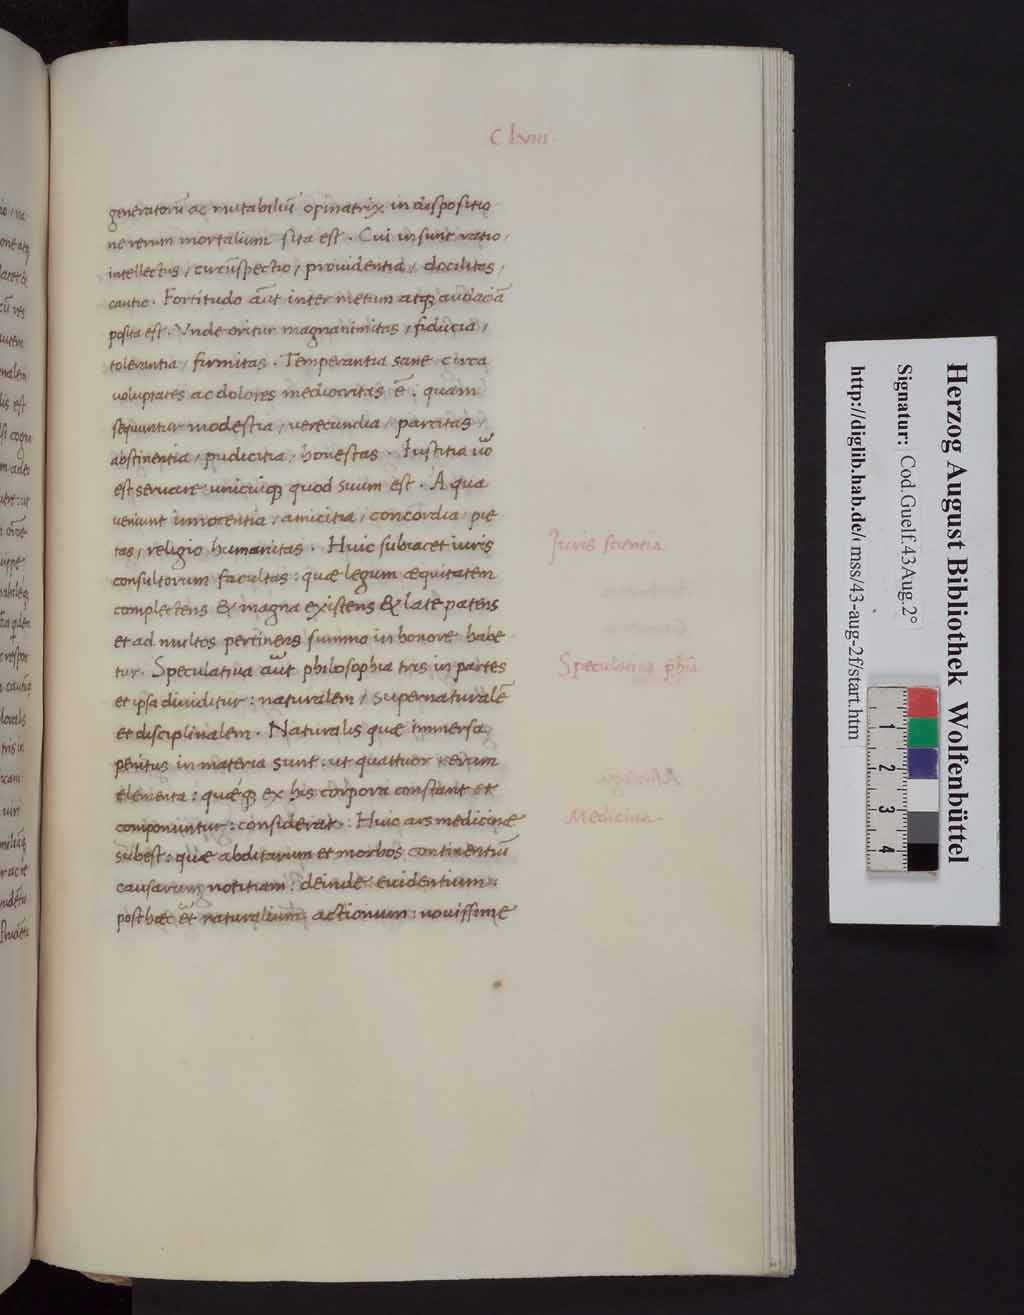 C lviii
generatorū ac mutabiliū opinatrix in dispositio
ne rerum mortalium sita est. Cui insunt ratio /
intellectus / circūspectio / prouidentia / docilitas /
cautio. Fortitudo aūt inter metum atq; audaciā
posita est. Vnde oritur magnanimitas / fiducia /
tolerantia / firmitas. Temperantia sane circa
uoluptates ac dolores mediocritas ē: quam
sequuntur modestia / uerecundia / parcitas /
abstinentia / pudicitia / honestas. Iustitia uō
est seruare unicuiq; quod suum est. A qua
ueniunt innocentia / amicitia / concordia / pie
tas / religio humanitas. Huic subiacet iuris
Juris scientia
consultorum facultas: quæ legum æquitatem
complectens & magna existens & late patens
et ad multos pertinens summo in honore habe
tur. Speculatiua aūt philosophia tris in partes
Speculatiua phīa
et ipsa diuiditur: naturalem / supernaturalē
et disciplinalem. Naturalis quæ immersa
penitus in materia sunt: ut quattuor rerum
elementa: quæq; ex his corpora constant et
componuntur: considerat: Huic ars medicinæ
Medicina
subest: quæ abditarum et morbos continentiū
causarum notitiam: deinde euidentium:
post hæc et naturalium actionum: nouissime
Herzog August Bibliothek Wolfenbüttel
Signatur: Cod.Guelf.43Aug.2°
http://diglib.hab.de/mss/43-aug-2f/start.htm
1 2 3 4